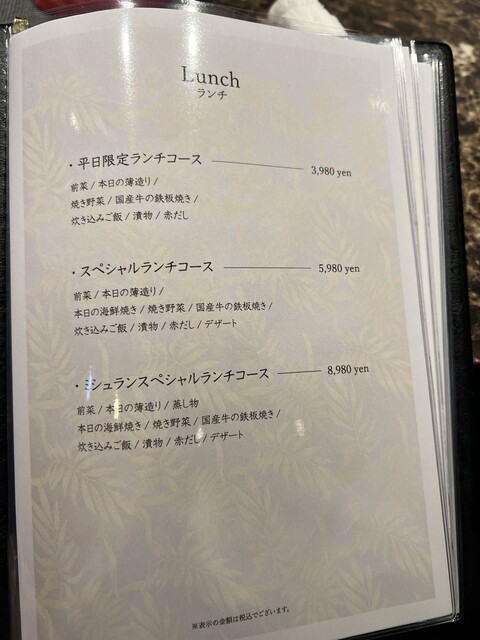 Lunch
ランチ
・平日限定ランチコース 3,980 yen
前菜 / 本日の薄造り /
焼き野菜 / 国産牛の鉄板焼き /
炊き込みご飯 / 漬物 / 赤だし
・スペシャルランチコース 5,980 yen
前菜 / 本日の薄造り /
本日の海鮮焼き / 焼き野菜 / 国産牛の鉄板焼き /
炊き込みご飯 / 漬物 / 赤だし / デザート
・ミシュランスペシャルランチコース 8,980 yen
前菜 / 本日の薄造り / 蒸し物
本日の海鮮焼き / 焼き野菜 / 国産牛の鉄板焼き /
炊き込みご飯 / 漬物 / 赤だし / デザート
※表示の金額は税込でございます。